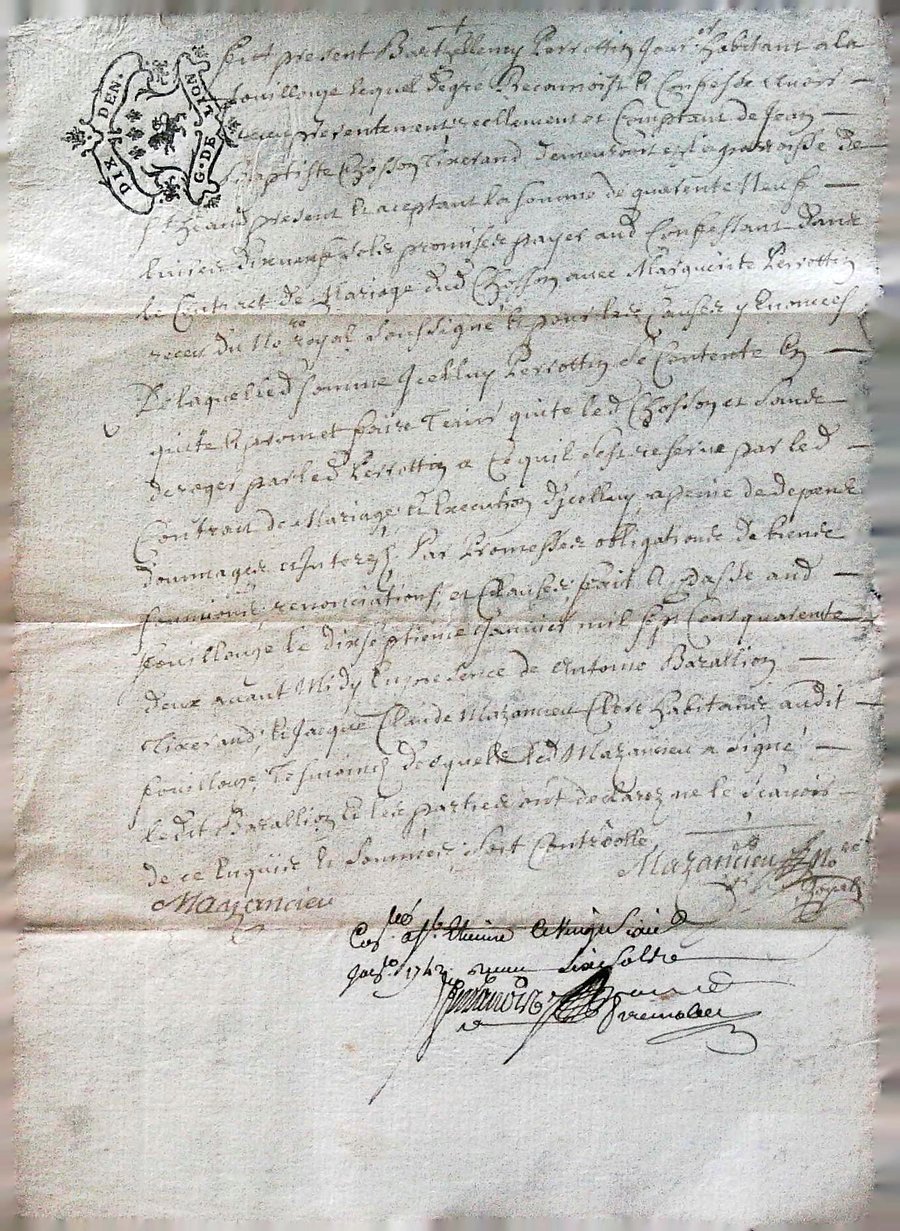 DIX DEN.
G. DE LION
fut present Barthellemy Perrottin Jour.er habitant a la
fouillouze lequel degre Reconnoist & Confesse avoir
receu presentement reellement et Comptant de Jean
Baptiste Chosson Tixerand demeurant en la parroisse de
St heand present & aceptant la somme de quarente Neuf
livres dixneuf sols promises payer aud Confessant dans
le Contract de Mariage dud Chosson avec Marguerite Perrottin
receu du No.re royal soussigné & pour les Causes y Enoncées
De laquelle d somme Jcelluy Perrottin se Contente En
quite & promet faire Tenir quite led Chosson et sans
deroger par led Perrottin a Ce quil sest reserve par led
Contract de Mariage & Execution dJcelluy a peine de depens
dommages & Interes Par Promesses obligations de biens
soumissions renonciations et Clauses fait & passé aud
fouillouze le dixseptieme Janvier mil sept Cens quarente
deux avant Midy En presence de Antoine Barallion
Tixerand & Jacque Claude Mazancieu Clerc habitans audit
fouillouze Tesmoins desquels led Mazancieu a signé
ledit Barallion & les parties ont declarez ne le scavoir
de ce Enquis & sommés, soit Controollé
Mazancieu No.re
royal
Mazancieu
Con.lé a St. Etienne le vingt
Janv. 1742 recu six sols